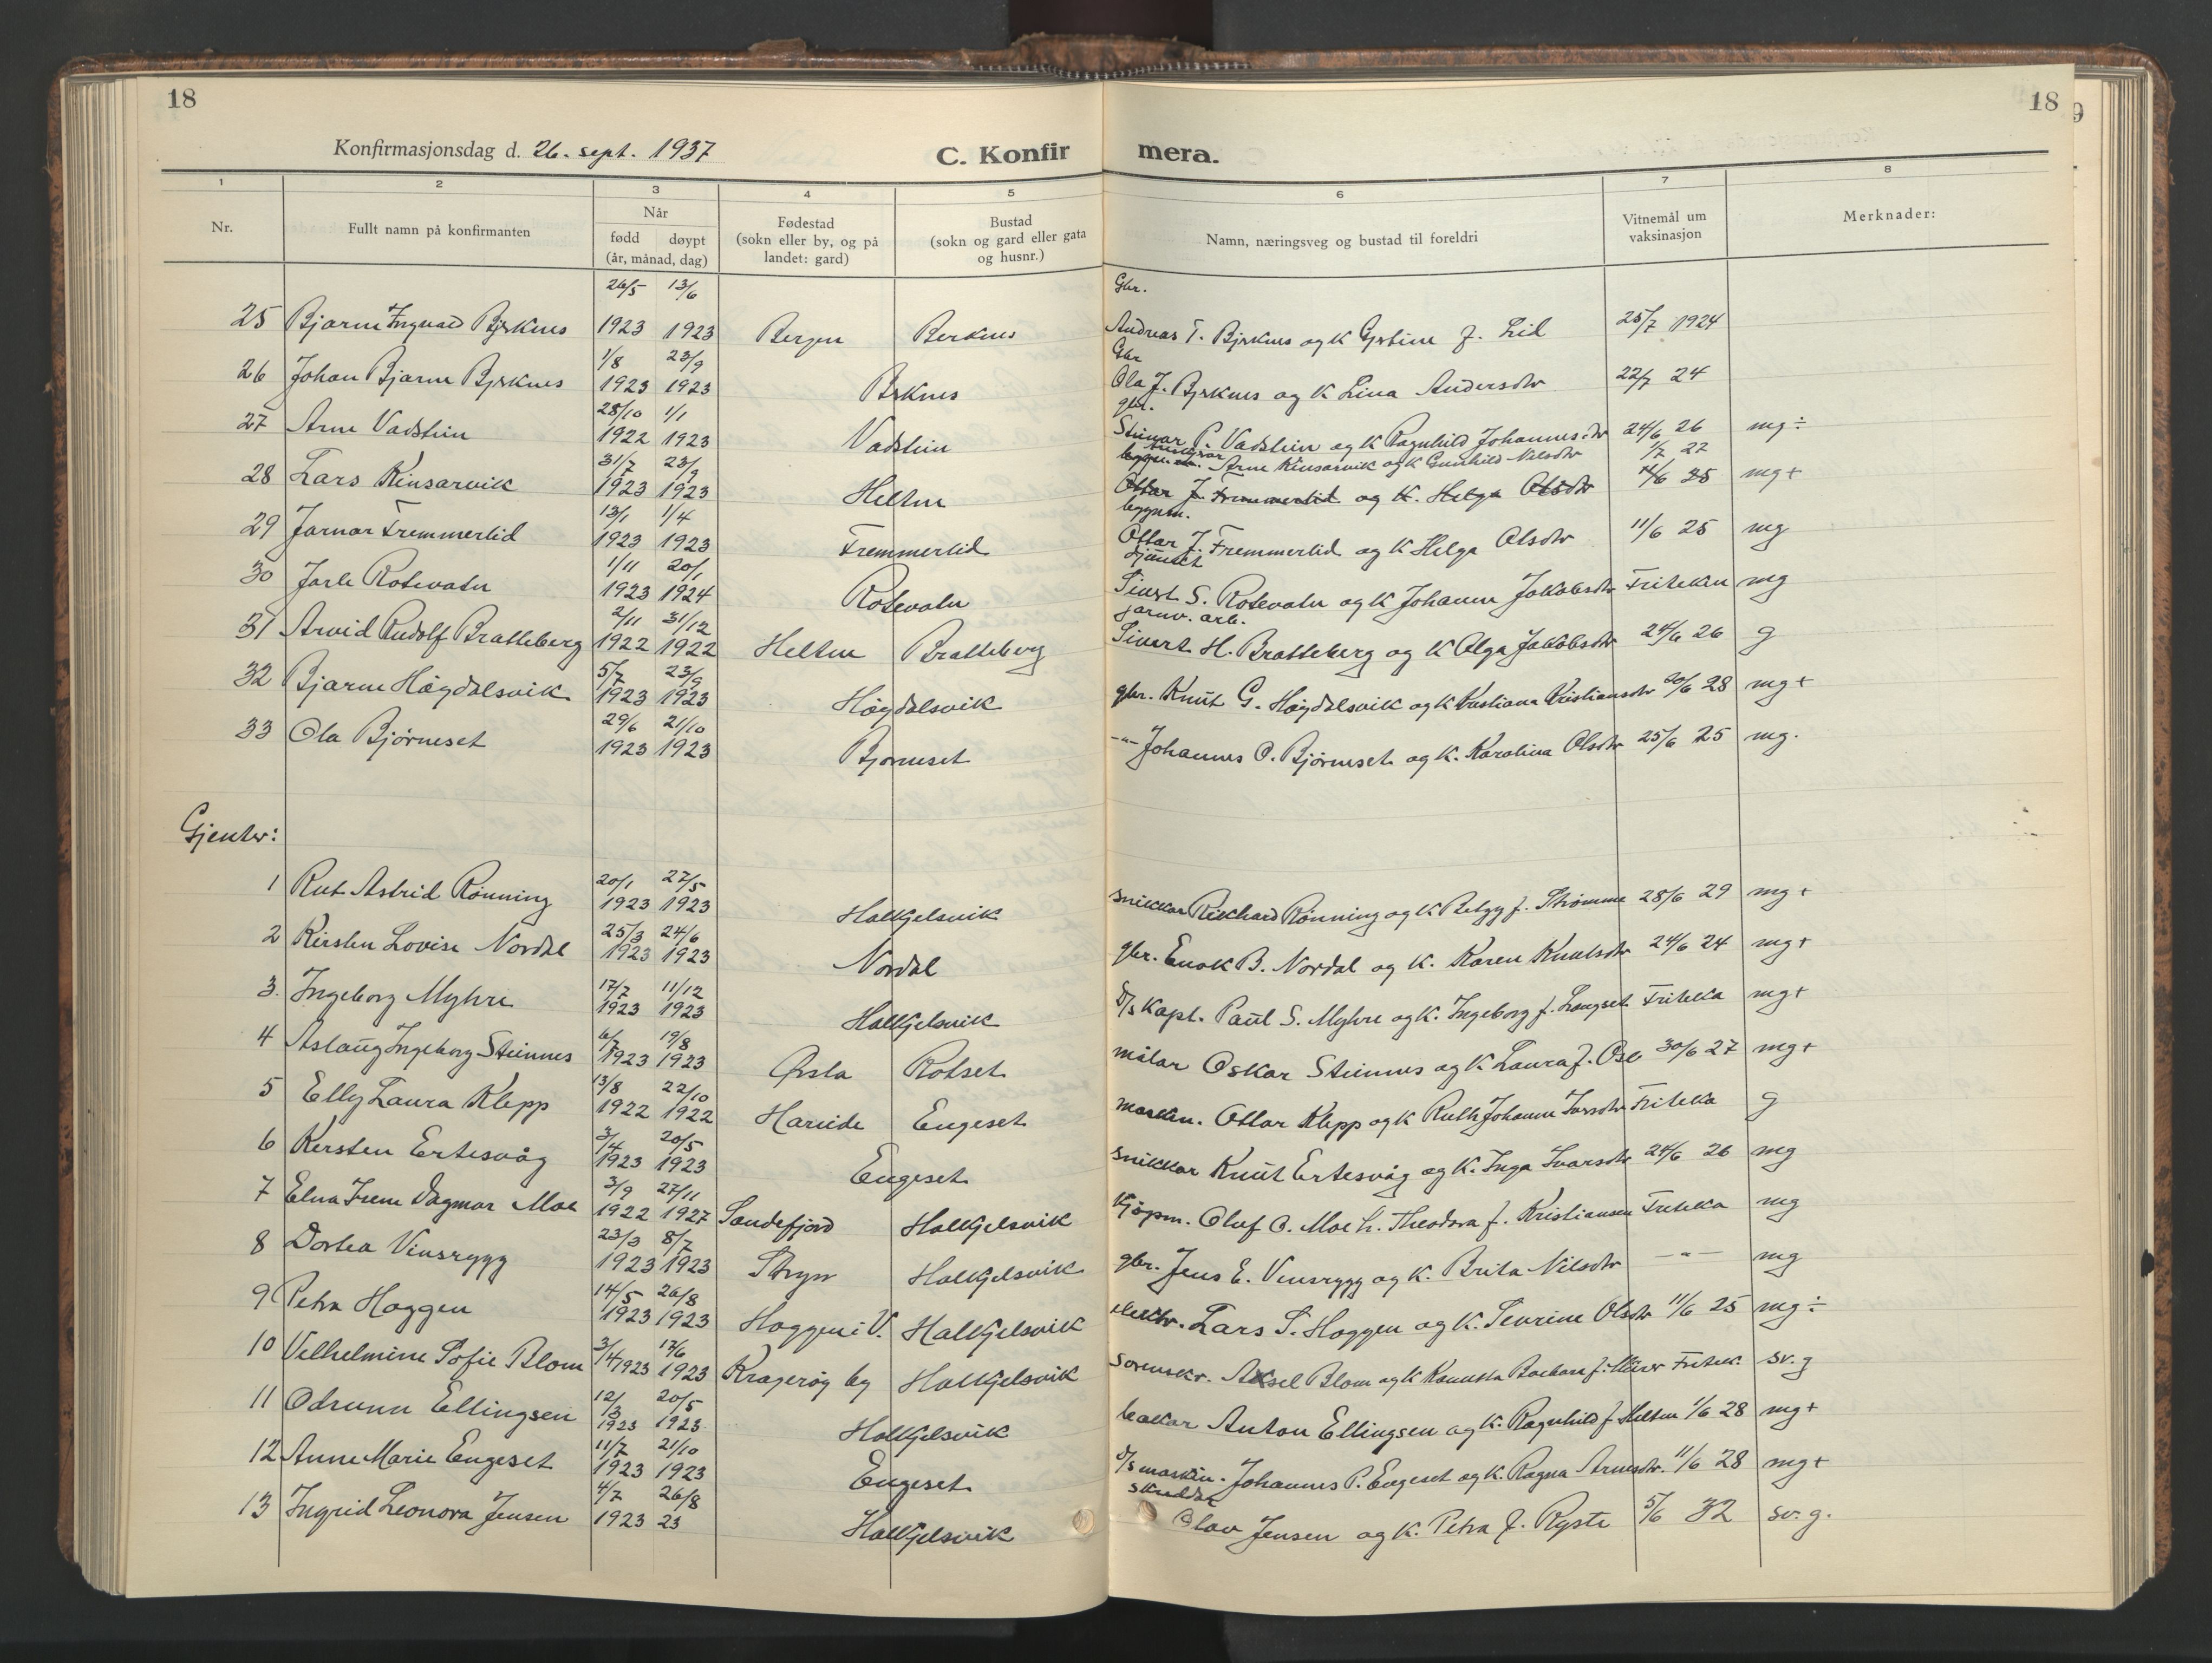 18
18
9
Konfirmasjonsdag d. 26. sept. 1937
C. Konfir mera.
1 2 3 4 5 6 7 8
Nr.
Fullt namn på konfirmanten
Når
fødd døypt
(år, månad, dag)
Fødestad
(sokn eller by, og på
landet: gard)
Bustad
(sokn og gard eller gata
og husnr.)
Namn, næringsveg og bustad til foreldri
Vitnemål um
vaksinasjon
Merknader:
26/5 13/6 Gbr.
25 Bjarne Ingvald Bjrknes 1923 1923 Bergen Berknes Andreas T. Bjrknes og K Gjertine f. Lid 25/7 1924
1/8 23/9 Gbr
26 Johan Bjarne Bjrknes 1923 1923 Brknes Ola J. Bjrknes og K Lina Andersdtr 22/7 24
28/10 1/1 gbr.
27 Arne Vadstein 1922 1923 Vadstein Steinar P. Vadstein og K Ragnhild Johannesdtr 24/6 26 mg ÷
31/7 23/9 Arne Kinsarvik og K Gunhild Nilsdtr 1/7 27
28 Lars Kinsarvik 1923 1923 Heltne Ottar J. Fremmerlid og K. Helga Olsdtr 11/6 25 mg +
13/1 1/4 byggm.
29 Jarnar Fremmerlid 1923 1923 Fremmerlid Ottar J. Fremmerlid og K Helga Olsdtr 11/6 25 mg
1/11 20/1
30 Jarle Rotevatn 1923 1924 Rotevatn Sivert S. Rotevatn og K Johanne Jakobsdtr Friteken mg
2/11 31/12 jarnv. arb.
31 Arvid Rudolf Bratteberg 1922 1922 Heltne Bratteberg Sivert H. Bratteberg og K Olga Jakobsdtr 24/6 26 g
5/7 23/9
32 Bjarne Høgdalsvik 1923 1923 Høgdalsvik gbr. Knut G. Høgdalsvik og K Kristiana Kristiansdtr 20/6 28 mg +
29/6 21/10
33 Ola Bjørneset 1923 1923 Bjørneset -"- Johannes O. Bjørneset og K. Karolina Olsdtr 25/6 25 mg.
Gjenter:
20/1 27/5
1 Rut Astrid Rønning 1923 1923 Halkjelsvik snikkar Rikhard Rønning og K Betzy f. Strømme 28/6 29 mg +
25/3 24/6
2 Kirsten Lovise Nordal 1923 1923 Nordal gbr. Enok B. Nordal og K. Karen Knutsdtr 24/6 24 mg +
17/7 11/12
3. Ingeborg Myhre 1923 1923 Halkjelsvik D/s Kapt. Paul S. Myhre og K. Ingeborg f. Langset Friteka mg +
6/7 19/8
4 Aslaug Ingeborg Steinnes 1923 1923 Ørsta Rotset målar Oskar Steinnes og K Laura f. Ose 30/6 27 mg +
13/8 22/10
5 Elly Laura Klepp 1922 1922 Hareide Engeset maskin. Ottar Klepp og K Ruth Johanne Larsdtr Friteka g
3/4 20/5
6 Kersten Ertesvåg 1923 1923 Engeset snikkar Knut Ertesvåg og K. Inga Ivarsdtr 24/6 26 mg
3/9 27/11
7 Elna Irene Dagmar Moe 1922 1927 Sandefjord Halkjelsvik Kjøpm. Oluf O. Moe h. Theodora f. Kristiansen Friteka mg
23/3 8/7
8 Dortea Vinsrygg 1923 1923 Stryn Halkjelsvik gbr. Jens E. Vinsrygg og K. Brita Nilsdtr -"- mg
14/5 26/8
9 Petra Hoggen 1923 1923 Hoggen i V. Halkjelsvik elektr. Lars S. Hoggen og K. Sevrine Olsdtr 11/6 25 mg ÷
3/ 17/6
10 Vilhelmine Sofie Blom 14 1923 1923 Kragerøy by Halkjelsvik sorenskr. Aksel Blom og K Barbara f. Friteke. sv. g
12/3 20/5
11 Odrunn Ellingsen 1923 1923 Halkjelsvik bakar Anton Ellingsen og K. Ragnhild f. Heltne 1/6 28 mg +
11/7 21/10
12 Anne Marie Engeset 1923 1923 Engeset D/s maskin. Johannes P. Engeset og K. Ragna Arnesdtr. 11/6 28 mg +
4/7 26/8 skreddar
13 Ingrid Leonora Jensen 1923 23 Halkjelsvik Olav Jensen og K. Petra f. Ryste 5/6 32 sv. g.